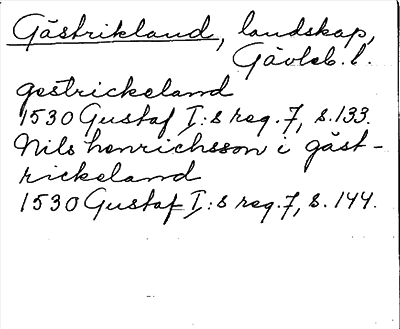 Gästrikland, landskap,
Gävleb. l.
gestrickeland
1530 Gustaf I:s reg. 7, s. 133.
Nils henrichsson i gäst-
rickeland
1530 Gustaf I:s reg. 7, s. 144.